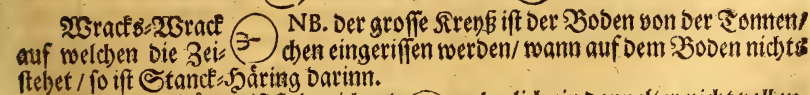 Wracks-Wrack NB. der grosse Kreyß ist der Boden von der Tonnen/
auf welchen die Zei- chen eingerissen werden/ wann auf dem Boden nichts
stehet / so ist Stanck-Häring darinn.